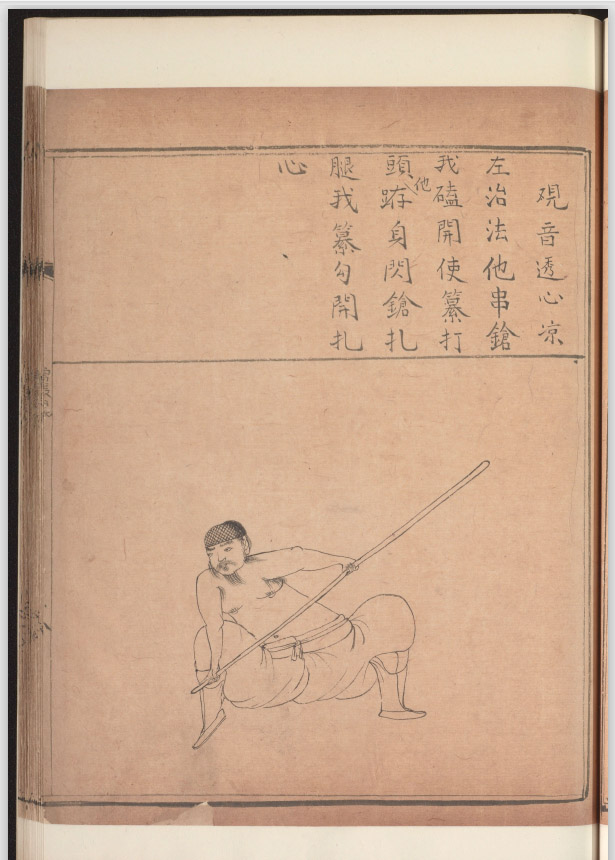 观音透心凉
左治法他串鎗
我磕開使纂打
頭他跨身閃鎗扎
腿我纂勾開扎
心